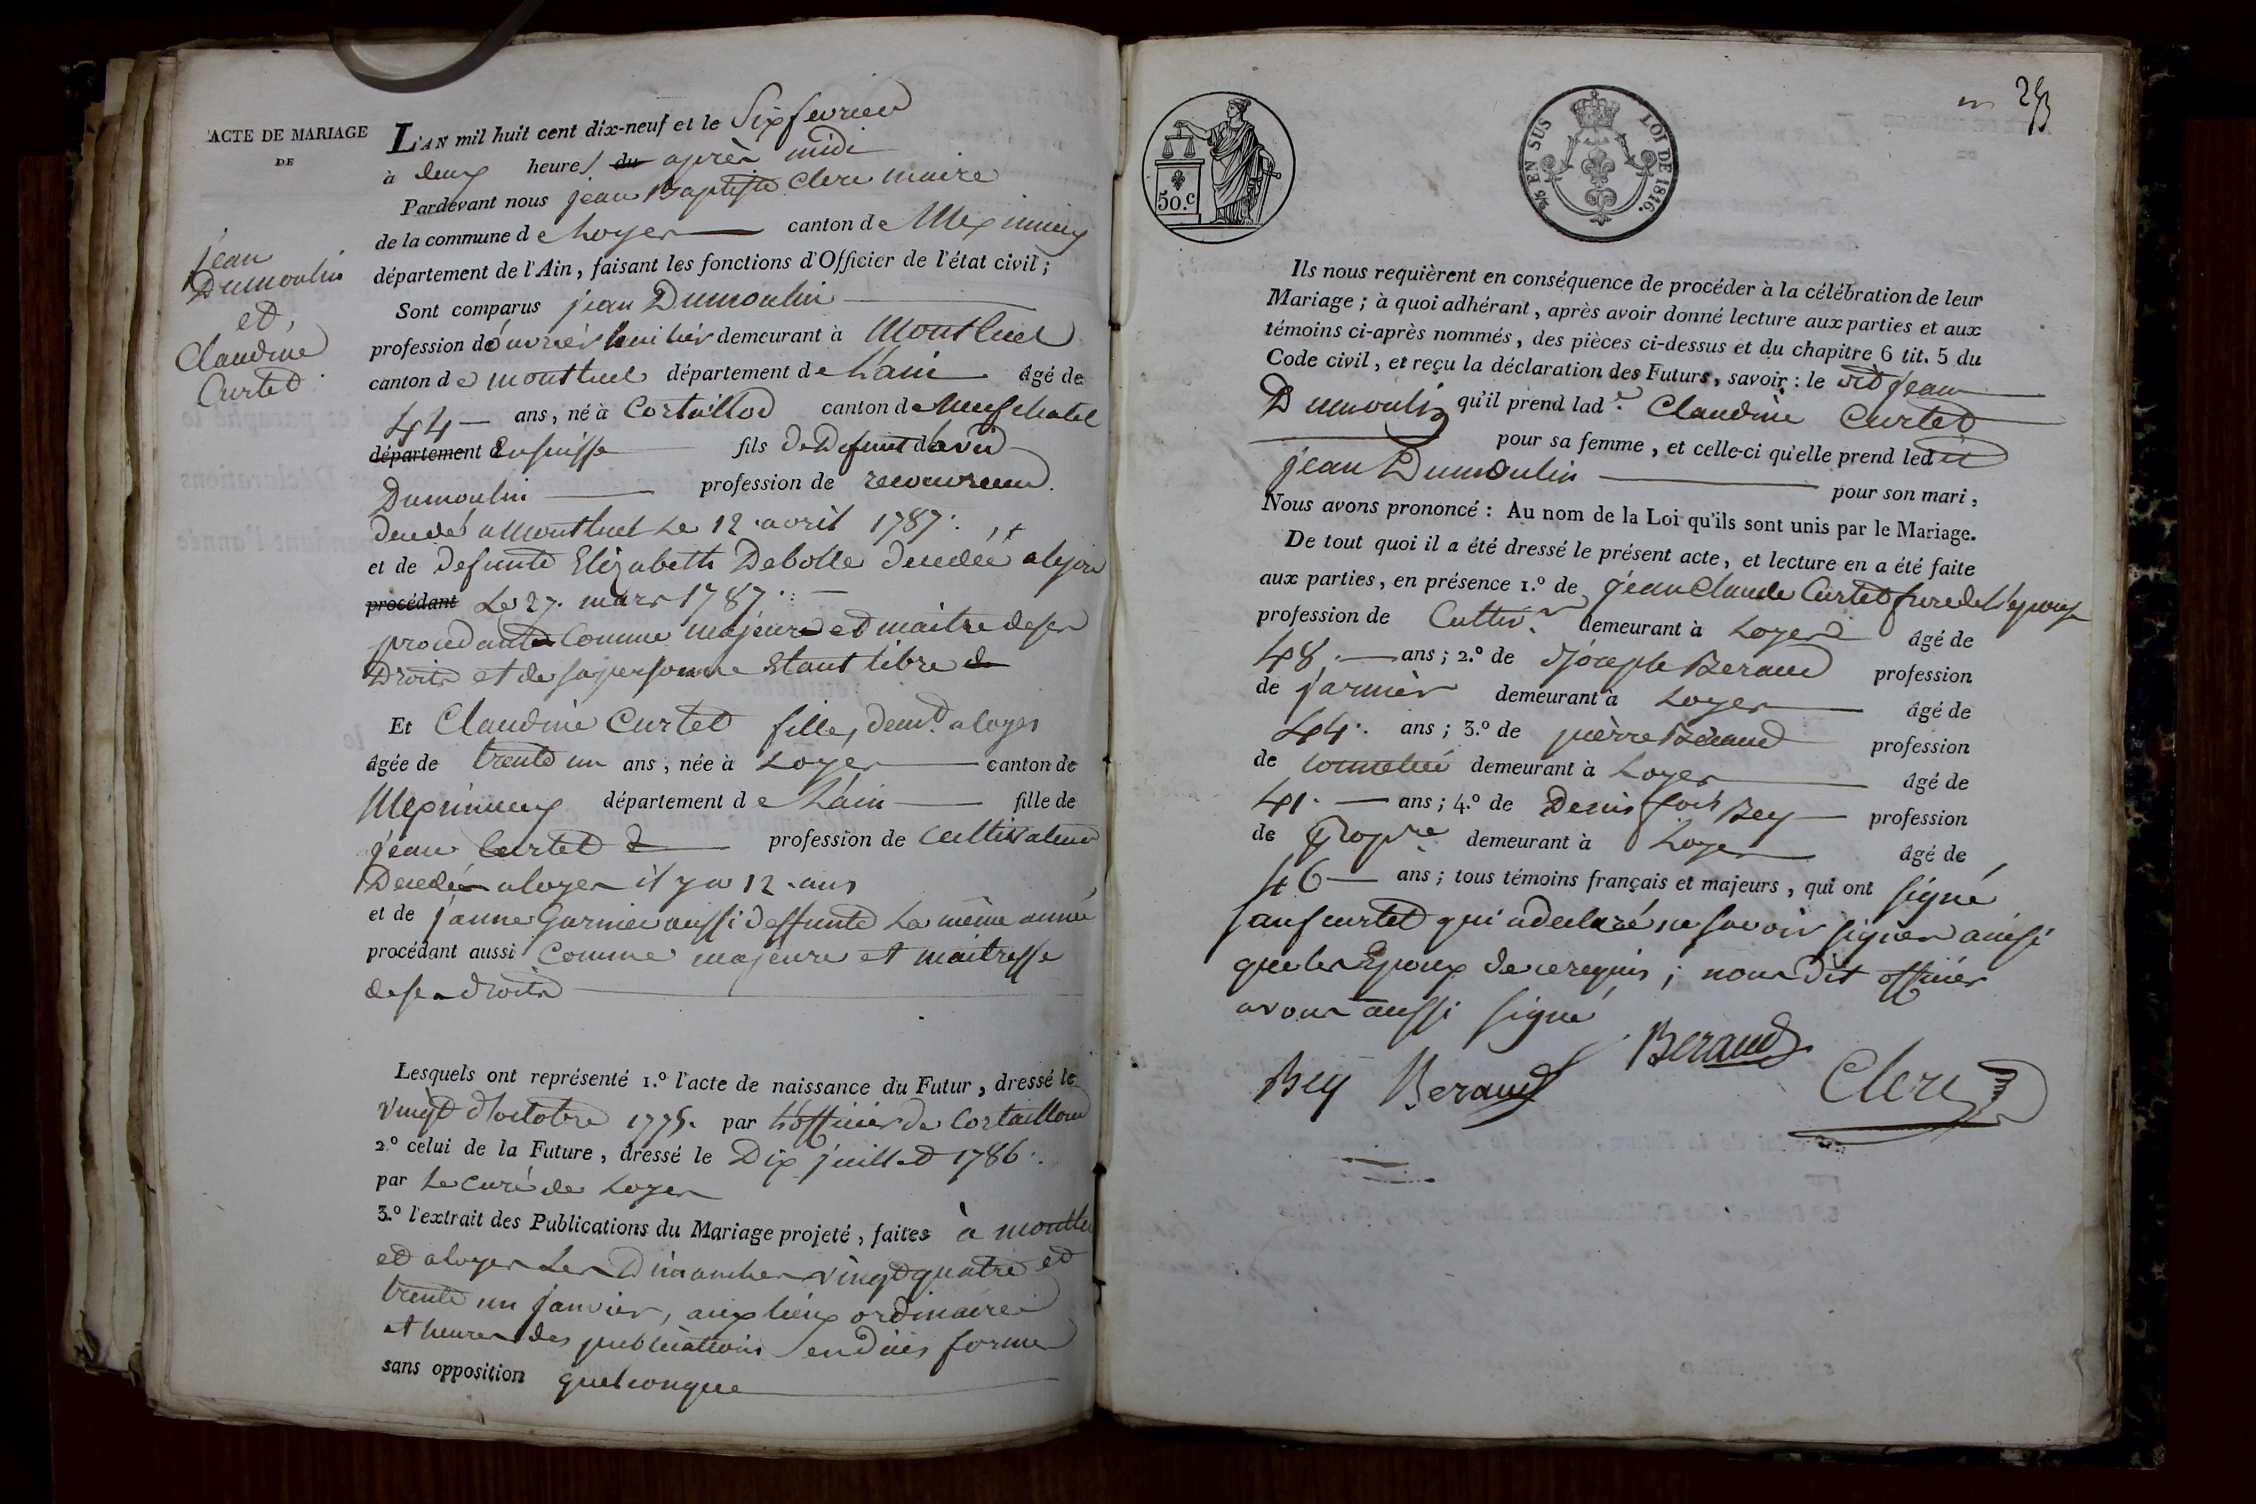 ACTE DE MARIAGE
DE
jean
Dumoulin
et
Claudine
Curtet
L'AN mil huit cent dix-neuf et le Six fevrier
à deux heures du après midi
Pardevant nous jean Baptiste Clerc maire
de la commune de Loyes canton de Meximieux
département de l'Ain, faisant les fonctions d'Officier de l'état civil;
Sont comparus jean Dumoulin
profession d'ouvrier demeurant à Montluel
canton de montluel département de L'ain âgé de
44 ans, né à Cortaillod canton de Neufchatel
département Ensuisse fils de Defunt david
Dumoulin profession de
Decedé a Montluel Le 12 avril 1787
et de defunte Elizabeth Debolle decedée a lyon
procédant Le 27 mars 1787
procedant Comme majeure et maitre de ses
Droits et de sa personne Etant libre
Et Claudine Curtet fille, demt. a loyes
âgée de trente un ans, née à Loyes canton de
Meximieux département de L'ain fille de
jean Curtet profession de Cultivateur
Decedé a loyes il y a 12 ans
et de janne Garnier aussi deffunte La même année
procédant aussi Comme majeure et maitresse
de ses droits
Lesquels ont représenté 1.º l'acte de naissance du Futur, dressé le
Vingt d'octobre 1775. par L'officier de Cortaillod
2.º celui de la Future, dressé le Dix juillet 1786.
par Le curé de Loyes
3.º l'extrait des Publications du Mariage projeté, faites à montluel
et a loyes Les Dimanches vingt quatre et
trente un janvier, aux lieux ordinaires
et heures des publications en dues formes
sans opposition quelconque
50.c
EN SUS
LOI DE 1816.
Ils nous requièrent en conséquence de procéder à la célébration de leur
Mariage; à quoi adhérant, après avoir donné lecture aux parties et aux
témoins ci-après nommés, des pièces ci-dessus et du chapitre 6 tit. 5 du
Code civil, et reçu la déclaration des Futurs, savoir: le dit jean
Dumoulin qu'il prend lad.e Claudine Curtet
pour sa femme, et celle-ci qu'elle prend ledit
jean Dumoulin pour son mari,
Nous avons prononcé: Au nom de la Loi qu'ils sont unis par le Mariage.
De tout quoi il a été dressé le présent acte, et lecture en a été faite
aux parties, en présence 1.º de jean Claude Curtet frere de l'epouse
profession de Cultivr. demeurant à Loyes âgé de
48. ans; 2.º de joseph Beraud profession
de farmier demeurant à Loyes âgé de
44. ans; 3.º de pièrre Beraud profession
de tonnelié demeurant à Loyes âgé de
41. ans; 4.º de Denis fois Bey profession
de propre demeurant à Loyes âgé de
46 ans; tous témoins français et majeurs, qui ont signé
sauf curtet qui a declaré ne savoir signer ainsi
que les Epoux de ce requis; nous dit officier
avons aussi signé
Bey Beraud Beraud Clerc